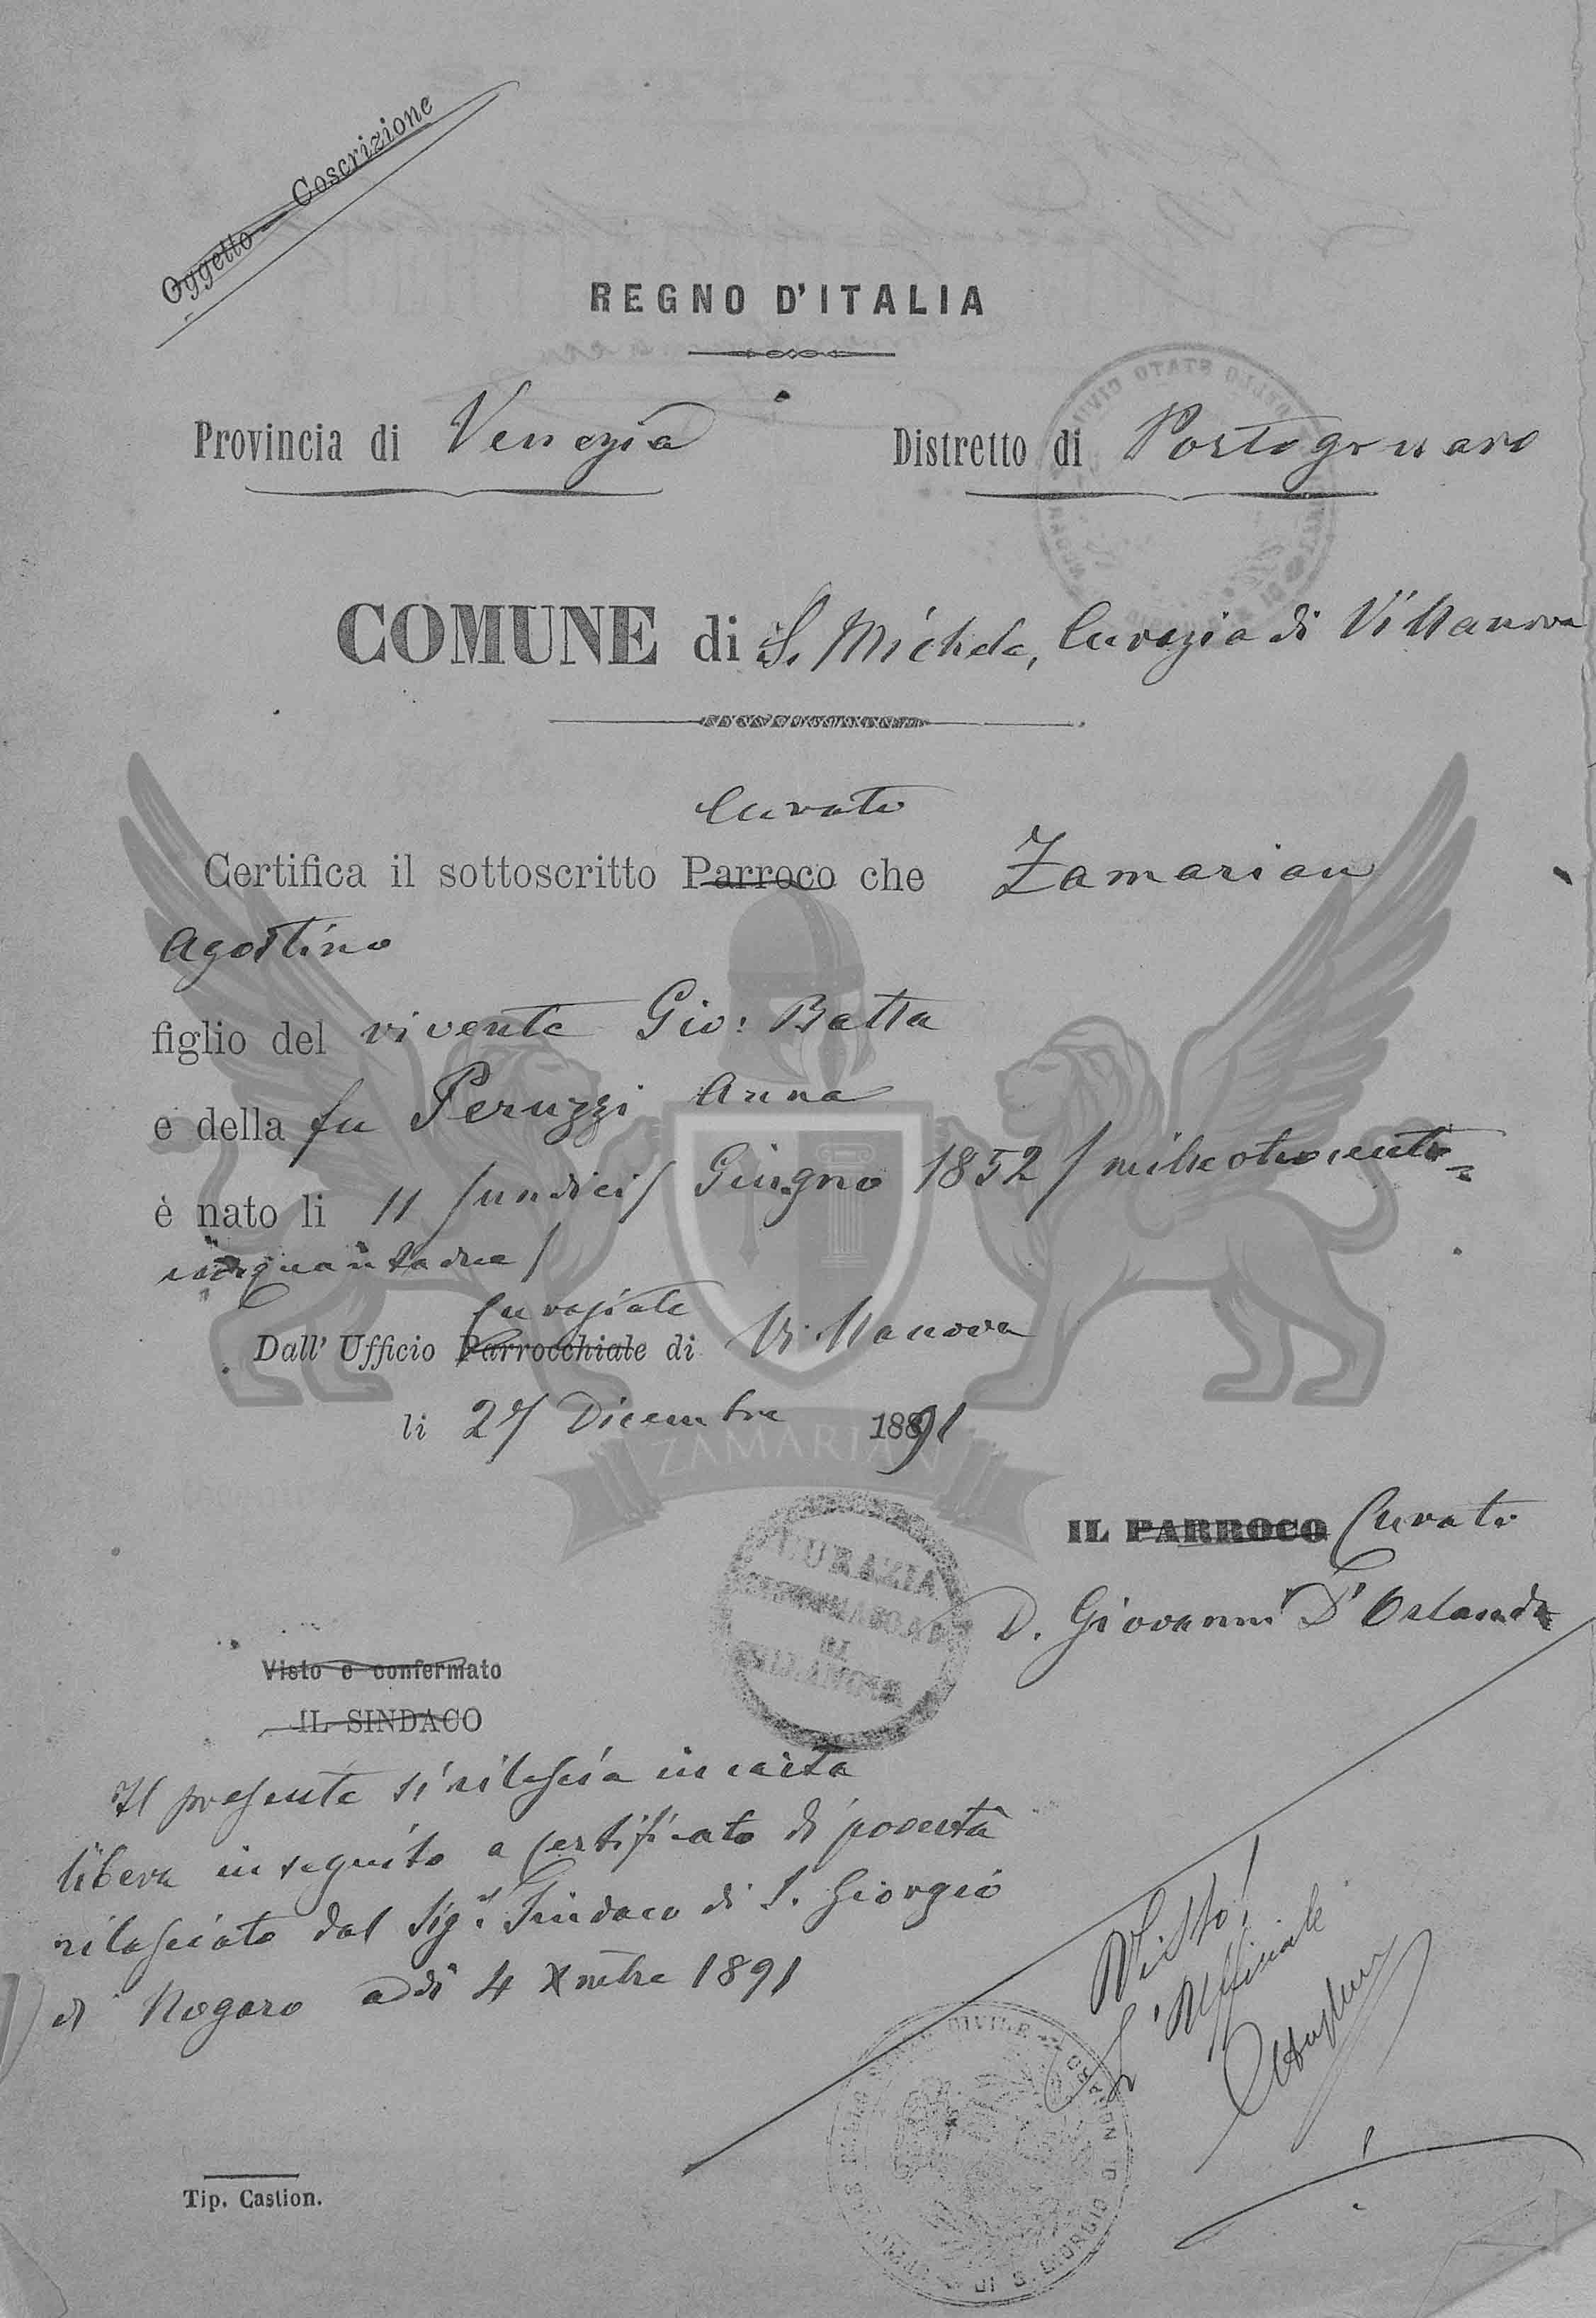 Oggetto — Coscrizione
REGNO D'ITALIA
Provincia di Venezia
Distretto di Portogruaro
COMUNE di S. Michele, Curazia di Villanova
Curato
Certifica il sottoscritto Parroco che Zamarian
Agostino
figlio del vivente Gio: Batta
e della fu Peruzzi Anna
è nato li 11 /undici/ Giugno 1852 / milleottocento=
cinquantadue /
Curaziale
Dall' Ufficio Parrocchiale di Villanova
li 27 Dicembre 1891
ZAMARIAN
IL PARROCO Curato
D. Giovanni D'Orlandi
CURAZIA
DI
VILLANOVA
Visto e confermato
IL SINDACO
Il presente si rilascia in carta
libera in seguito a certificato di povertà
rilasciato dal Sigr. Sindaco di S. Giorgio
di Nogaro addì 4 Xmbre 1891
Visto!
L'Ufficiale
STATO CIVILE
DI S. GIORGIO DI NOGARO
Tip. Castion.